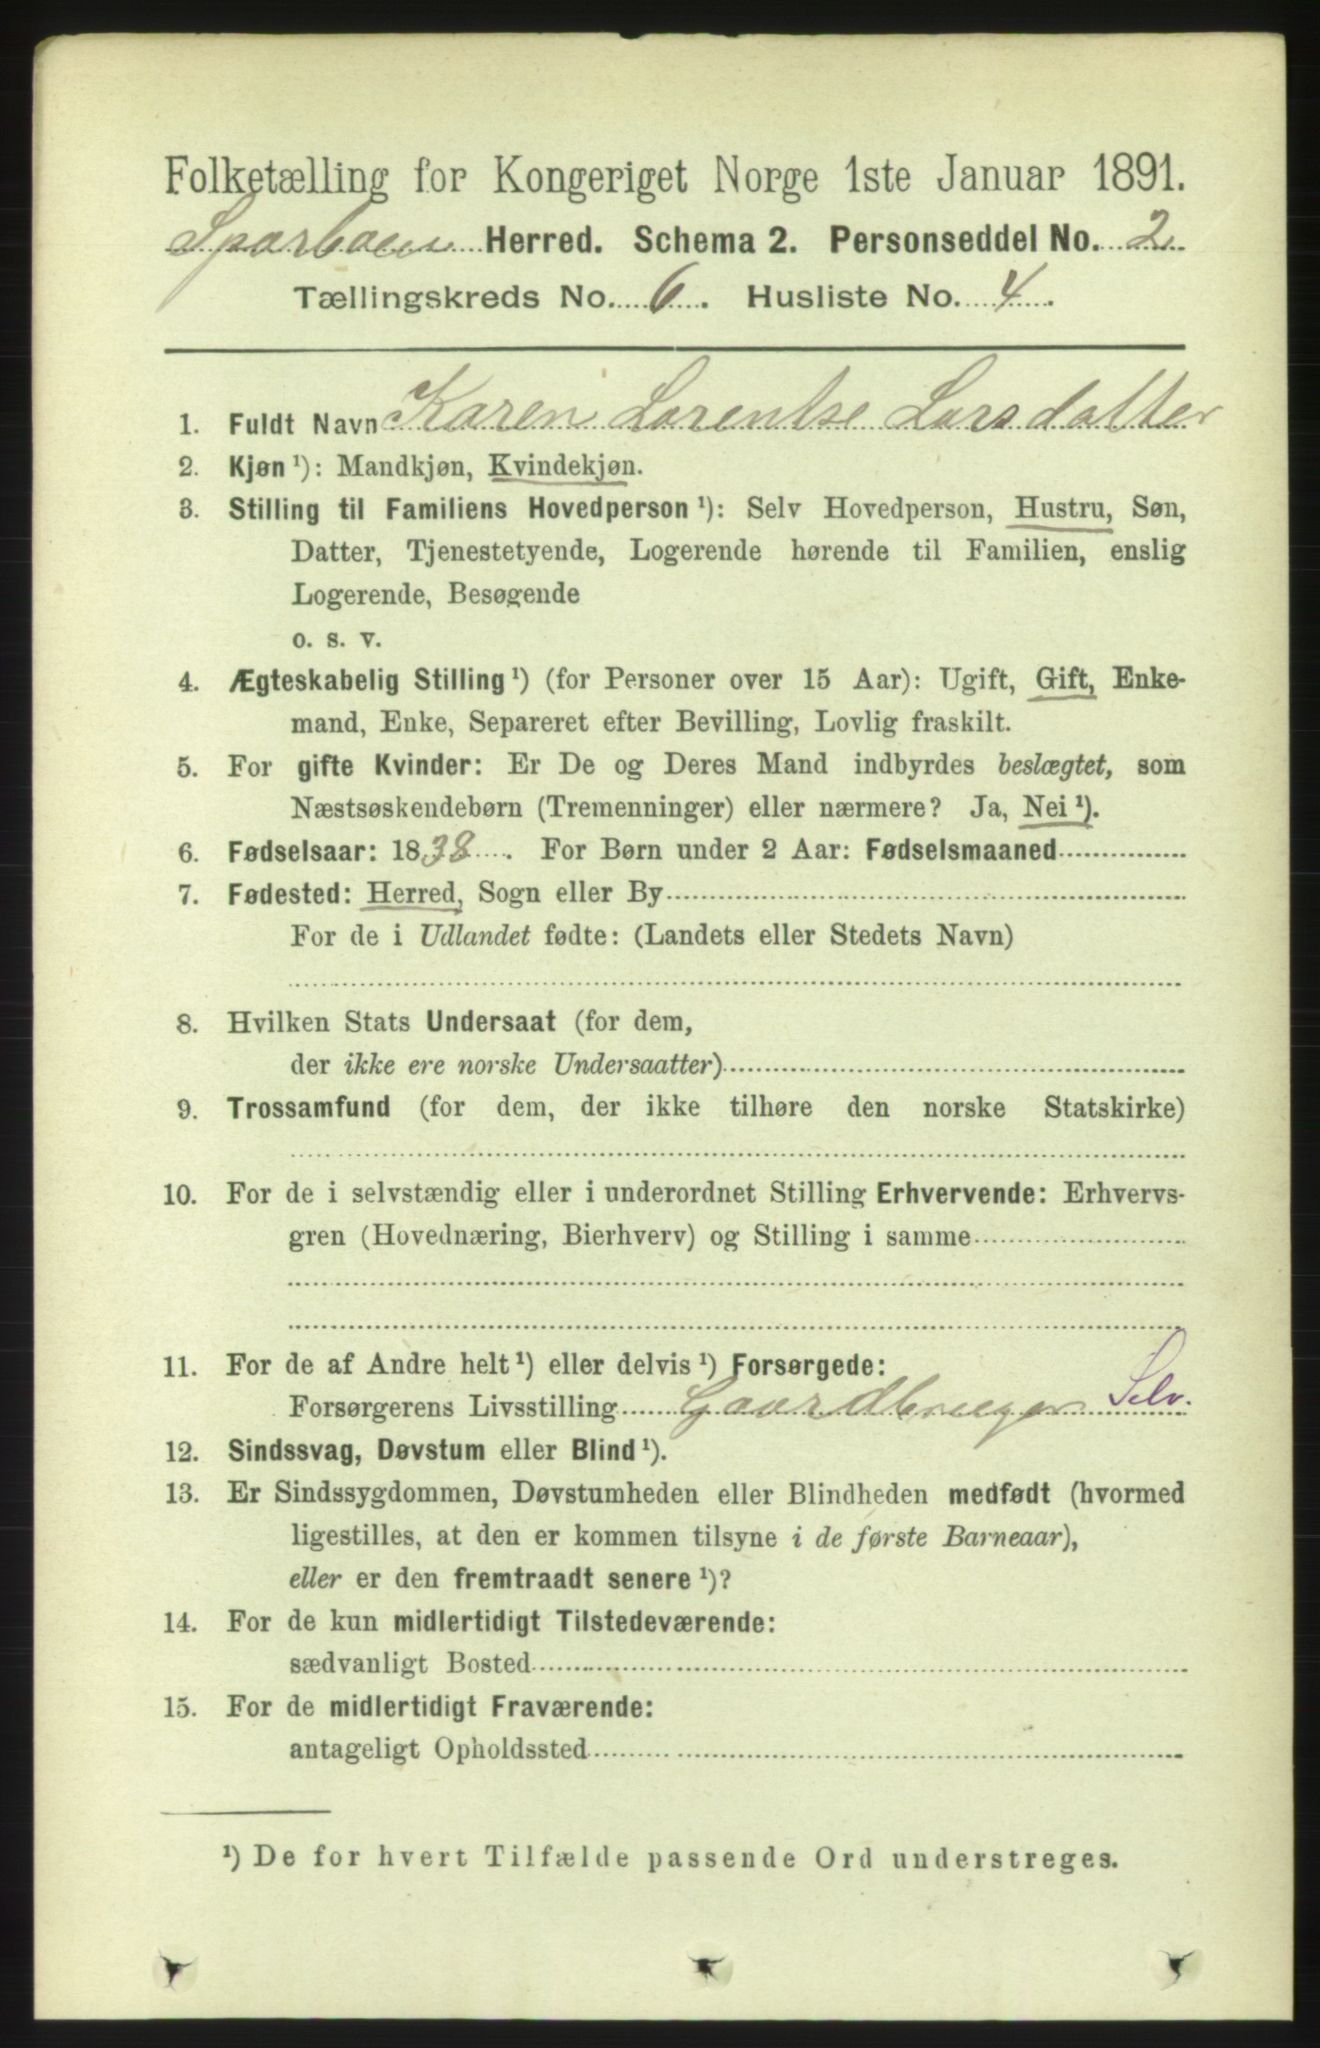 Folketælling for Kongeriget Norge 1ste Januar 1891.
Sparboen Herred. Schema 2. Personseddel No. 2
Tællingskreds No. 6. Husliste No. 4.
1. Fuldt Navn Karen Lorentse Larsdatter
2. Kjøn ¹): Mandkjøn, Kvindekjøn.
3. Stilling til Familiens Hovedperson ¹): Selv Hovedperson, Hustru, Søn,
Datter, Tjenestetyende, Logerende hørende til Familien, enslig
Logerende, Besøgende
o. s. v.
4. Ægteskabelig Stilling ¹) (for Personer over 15 Aar): Ugift, Gift, Enke-
mand, Enke, Separeret efter Bevilling, Lovlig fraskilt.
5. For gifte Kvinder: Er De og Deres Mand indbyrdes beslægtet, som
Næstsøskendebørn (Tremenninger) eller nærmere? Ja, Nei ¹).
6. Fødselsaar: 1838. For Børn under 2 Aar: Fødselsmaaned
7. Fødested: Herred, Sogn eller By
For de i Udlandet fødte: (Landets eller Stedets Navn)
8. Hvilken Stats Undersaat (for dem,
der ikke ere norske Undersaatter)
9. Trossamfund (for dem, der ikke tilhøre den norske Statskirke)
10. For de i selvstændig eller i underordnet Stilling Erhvervende: Erhvervs-
gren (Hovednæring, Bierhverv) og Stilling i samme
11. For de af Andre helt ¹) eller delvis ¹) Forsørgede:
Forsørgerens Livsstilling Gaardbruger Selv.
12. Sindssvag, Døvstum eller Blind ¹).
13. Er Sindssygdommen, Døvstumheden eller Blindheden medfødt (hvormed
ligestilles, at den er kommen tilsyne i de første Barneaar),
eller er den fremtraadt senere ¹)?
14. For de kun midlertidigt Tilstedeværende:
sædvanligt Bosted
15. For de midlertidigt Fraværende:
antageligt Opholdssted
¹) De for hvert Tilfælde passende Ord understreges.